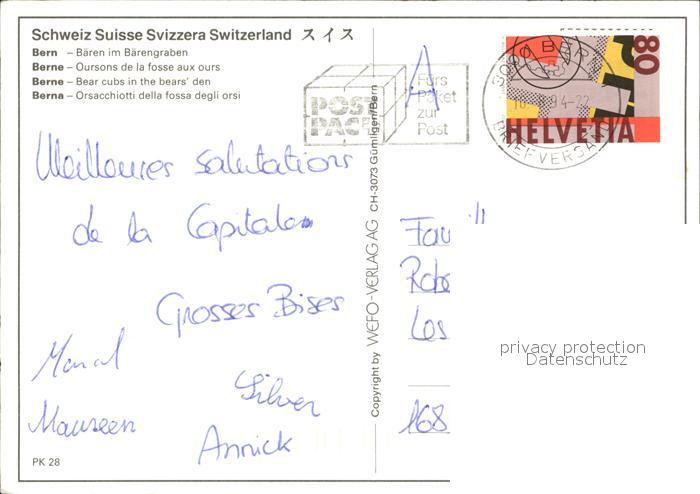 Schweiz Suisse Svizzera Switzerland スイス
Bern – Bären im Bärengraben
Berne – Oursons de la fosse aux ours
Berne – Bear cubs in the bears' den
Berna – Orsacchiotti della fossa degli orsi
Meilleures salutations
de la Capitale
Grosses Bises
Marcal
Maureen
Silver
Annick
PK 28
Copyright by WEFO-VERLAG AG CH-3073 Gümligen/Bern
POST
PAC
Fürs
Paket
zur
Post
A
80
HELVETIA
BRIEFVERSAND
94-22
Robe
Les
168
privacy protection
Datenschutz